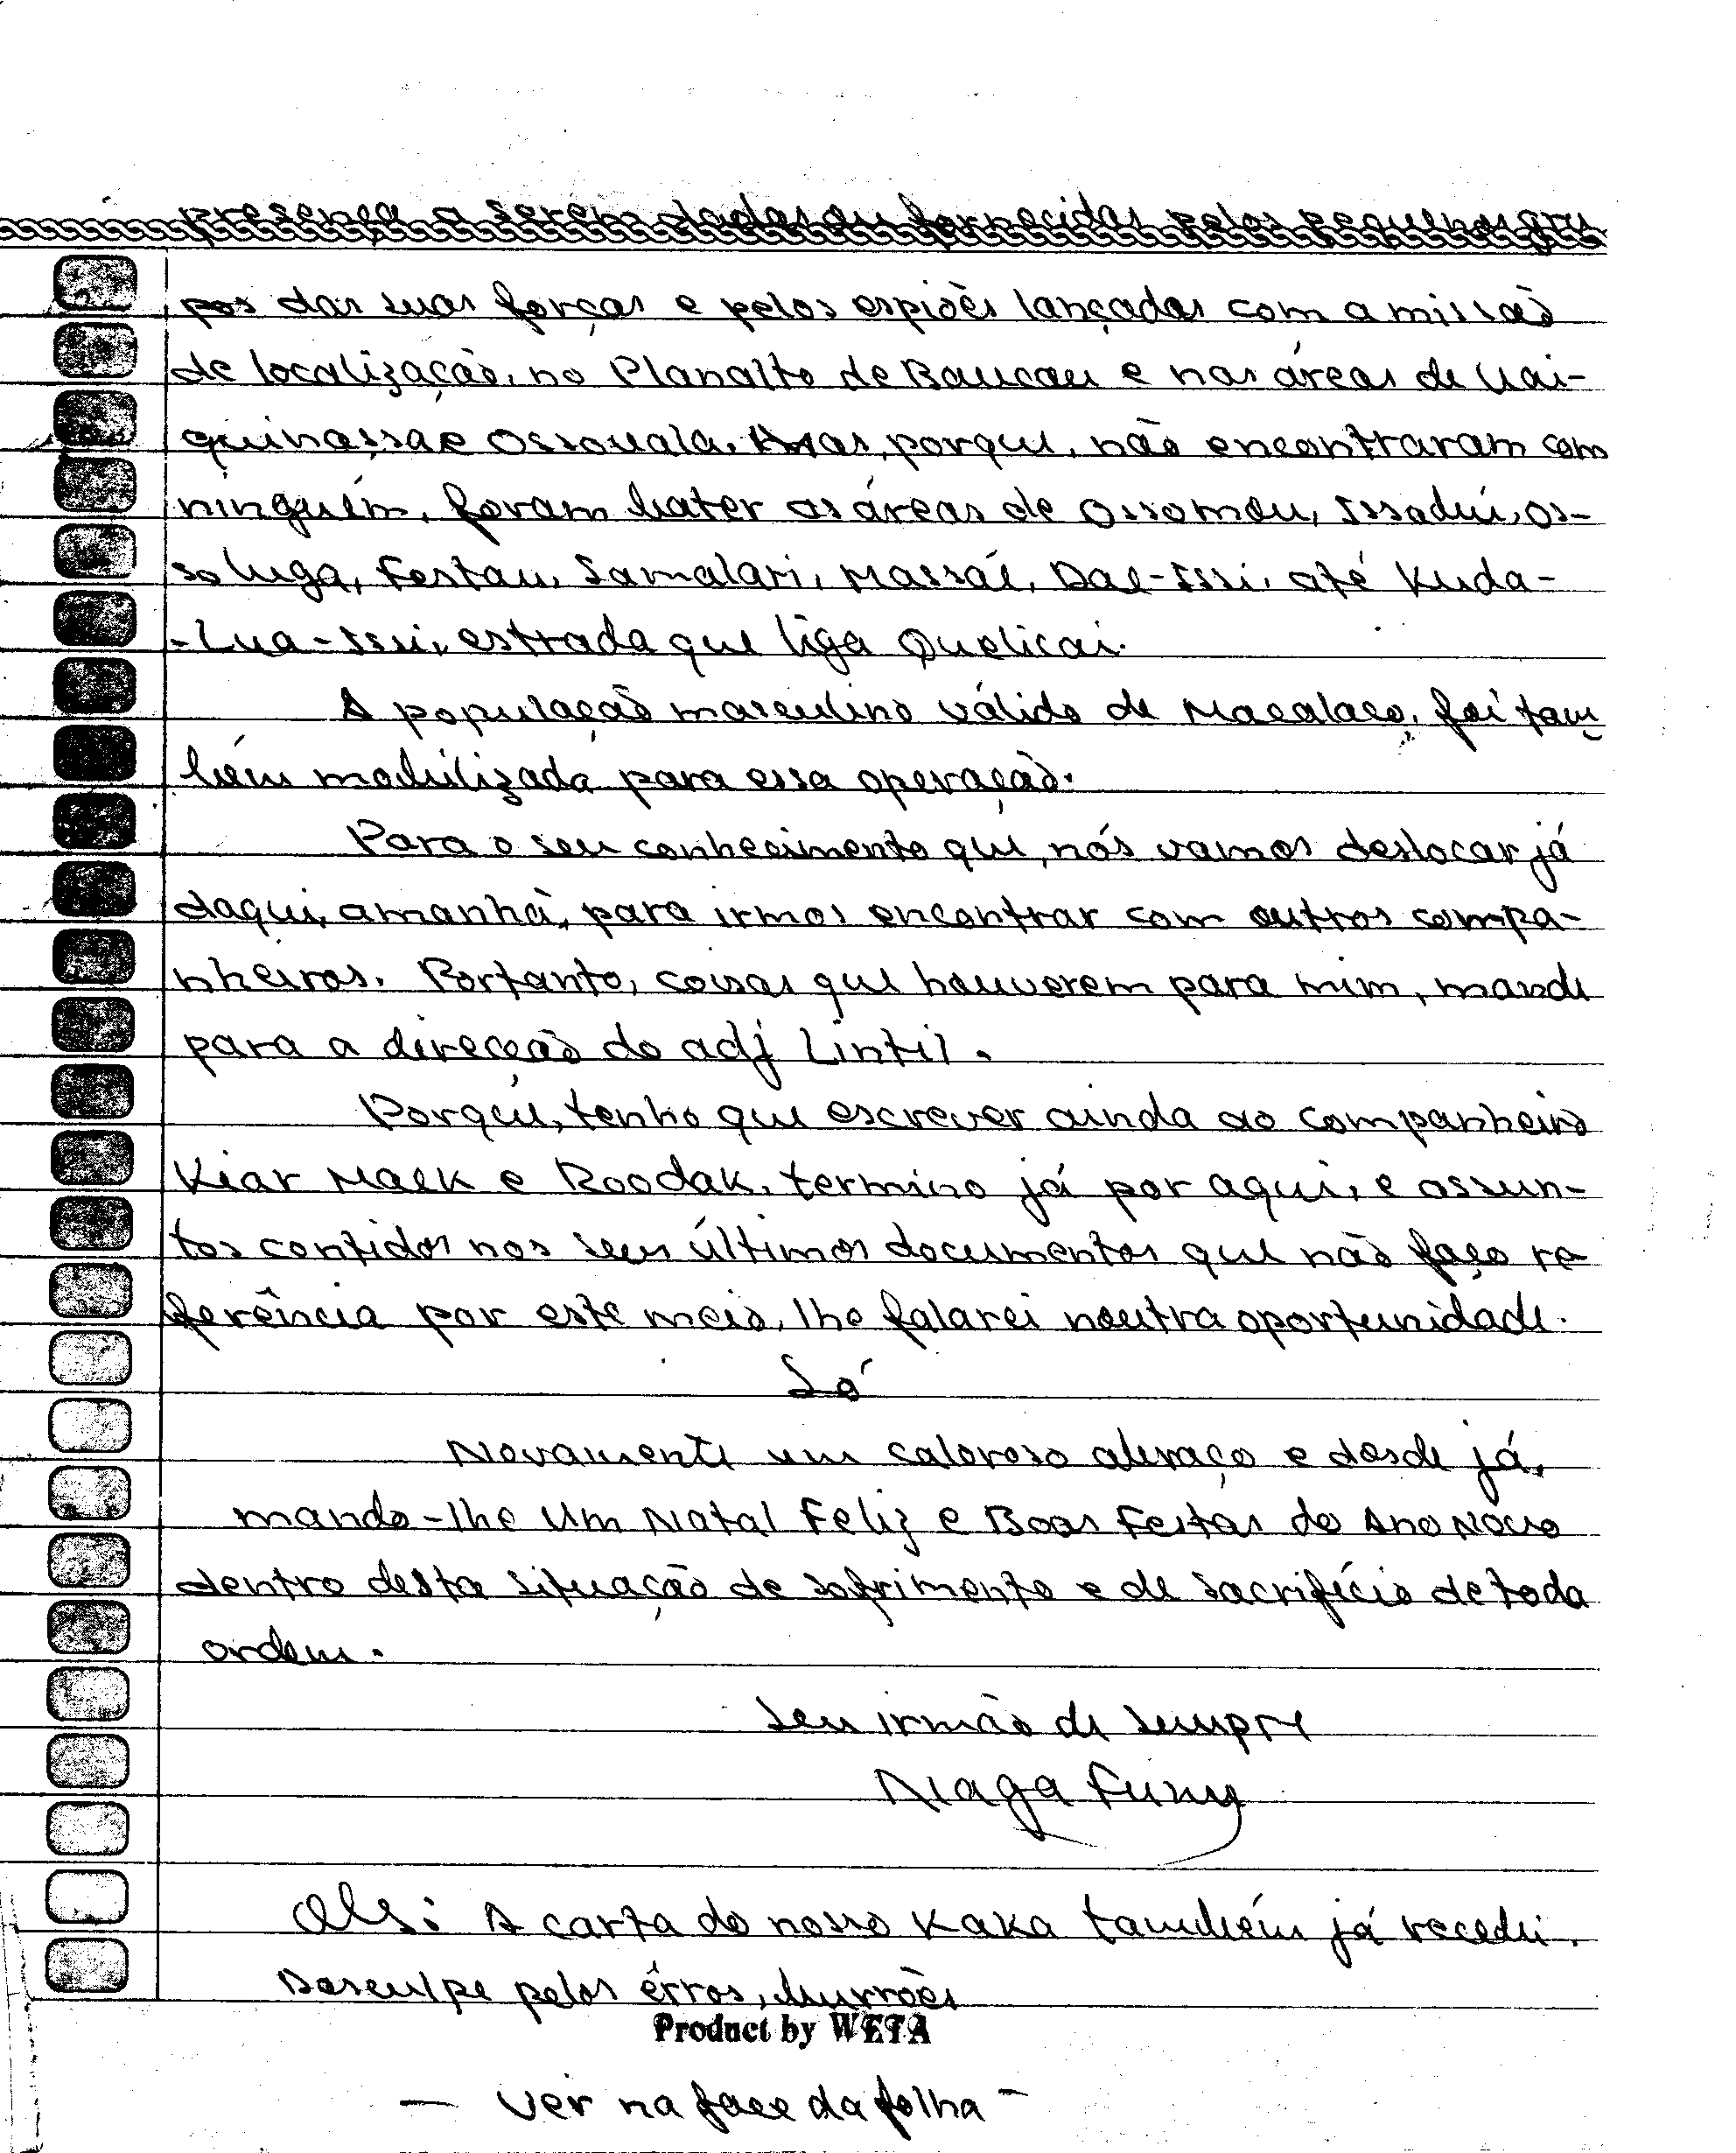 presença a serem dadas ou fornecidas pelos pequenos gru
pos das suas forças e pelos espiões lançados com a missão
de localização, no Planalto de Baucau e nas áreas de Uai-
quinassa e Ossouala. Mas, porquê, não encontraram com
ninguém, foram bater as áreas de Ossomou, Issaduí, Os-
soluga, Festau, Samalari, Massaé, Dae-Issi, até Kuda-
-Lua-Issi, estrada que liga Quelicai.
A população masculino válido de Macalaco, foi tam
bém mobilizada para essa operação.
Para o seu conhecimento quê, nós vamos deslocar já
daqui, amanhã, para irmos encontrar com outros compa-
nheiros. Portanto, coisas que houverem para mim, mande
para a direcção do adj Lintil.
Porquê, tenho que escrever ainda ao companheiro
Kiar Maek e Roodak, termino já por aqui, e assun-
tos contidos nos seus últimos documentos que não faço re-
ferência por este meio, lhe falarei noutra oportunidade.
Só
Novamente um caloroso abraço e desde já,
mando-lhe Um Natal Feliz e Boas Festas do Ano Novo
dentro desta situação de sofrimento e de sacrifício de toda
ordem.
Seu irmão de sempre
Diaga Funy
Obs: A carta do nosso Kaka também já recebi.
Desculpe pelos êrros, burrões
Product by WETA
— Ver na face da folha —